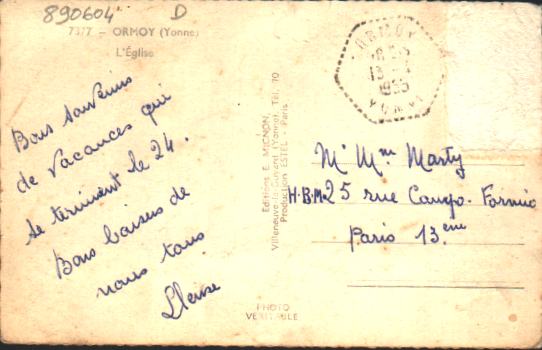 890604 D
7377 - ORMOY (Yonne)
L'Église
ORMOY
13
1955
YONNE
Bons souvenirs
de vacances qui
se terminent le 24.
Bons baisers de
nous tous
Editions E. MIGNON,
Villeneuve-la-Guyard (Yonne), Tél. 10
Production ESTEL - Paris
Mr Mme Marty
H.B.M. 25 rue Campo-Formio
Paris 13ème
PHOTO
VERITABLE